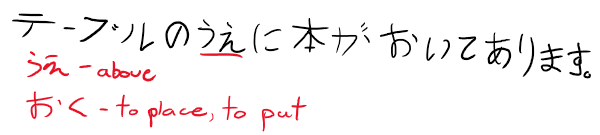 テーブルのうえに本がおいてあります。
うえ - above
おく - to place, to put